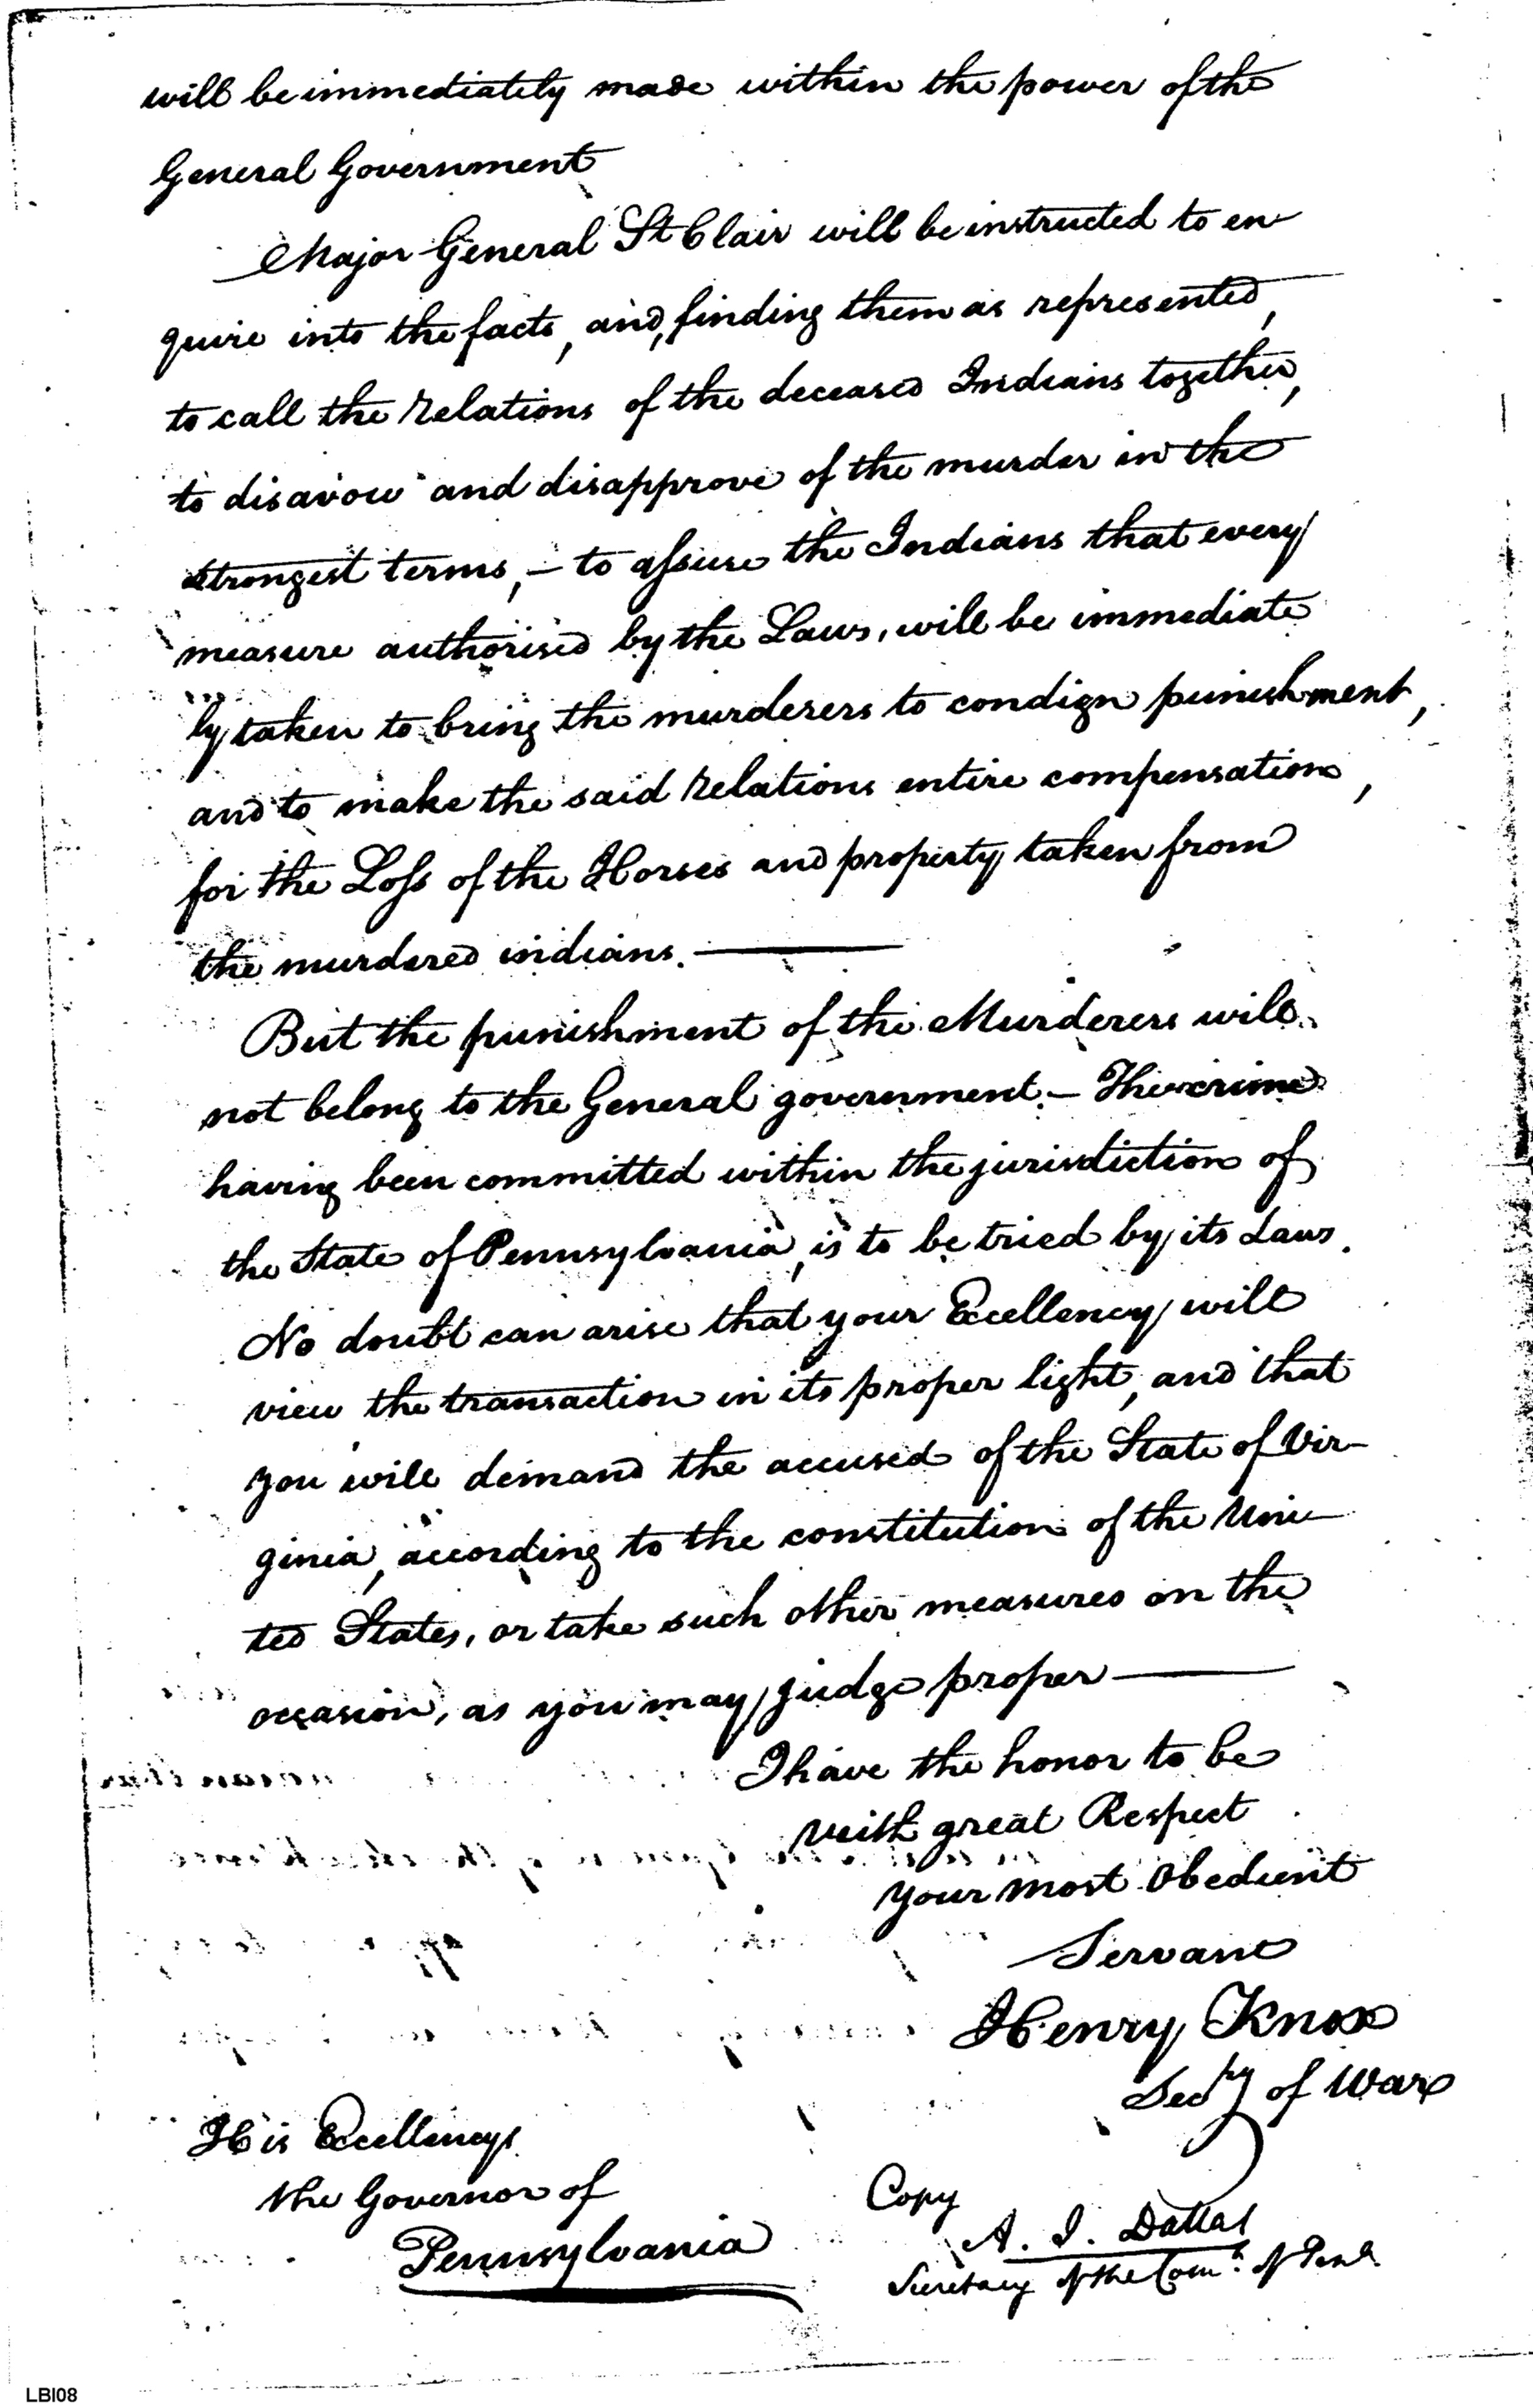 will be immediately made within the power of the
General Government
Major General St Clair will be instructed to en
quire into the facts, and, finding them as represented,
to call the relations of the deceased Indians together,
to disavow and disapprove of the murder in the
strongest terms, – to assure the Indians that every
measure authorised by the Laws, will be immediate
ly taken to bring the murderers to condign punishment,
and to make the said relations entire compensation,
for the Loss of the Horses and property taken from
the murdered indians. —
But the punishment of the Murderers will
not belong to the General government. – The crime
having been committed within the jurisdiction of
the State of Pennsylvania, is to be tried by its Laws.
No doubt can arise that your Excellency will
view the transaction in its proper light, and that
you will demand the accused of the State of Vir-
ginia, according to the constitution of the Uni-
ted States, or take such other measures on the
occasion, as you may judge proper —
I have the honor to be
with great Respect
your most Obedient
Servant
Henry Knox
Secry of War
His Excellency
the Governor of
Pennsylvania
Copy
A. J. Dallas
Secretary of the Comh. of Pena.
LBI08